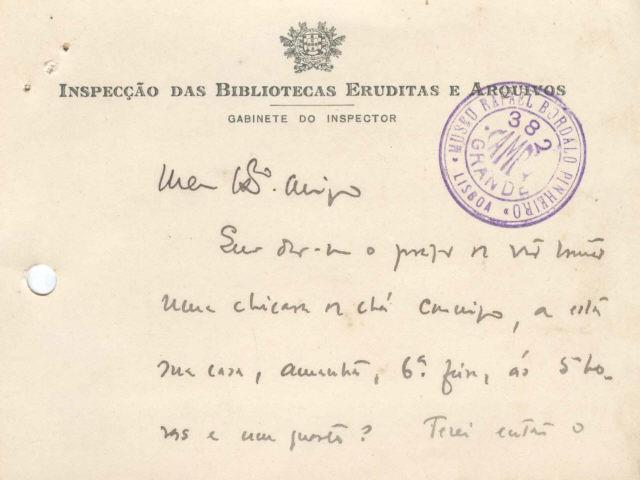 INSPECÇÃO DAS BIBLIOTECAS ERUDITAS E ARQUIVOS
GABINETE DO INSPECTOR
MUSEU RAFAEL BORDALO PINHEIRO
LISBOA
382
CAMPO
GRANDE
Meu Amigo
Quer dar-me o prazer de vir tomar
uma chicara de chá comigo, a esta
sua casa, amanhã, 6ª feira, ás 5 ho-
ras e um quarto? Terei então o